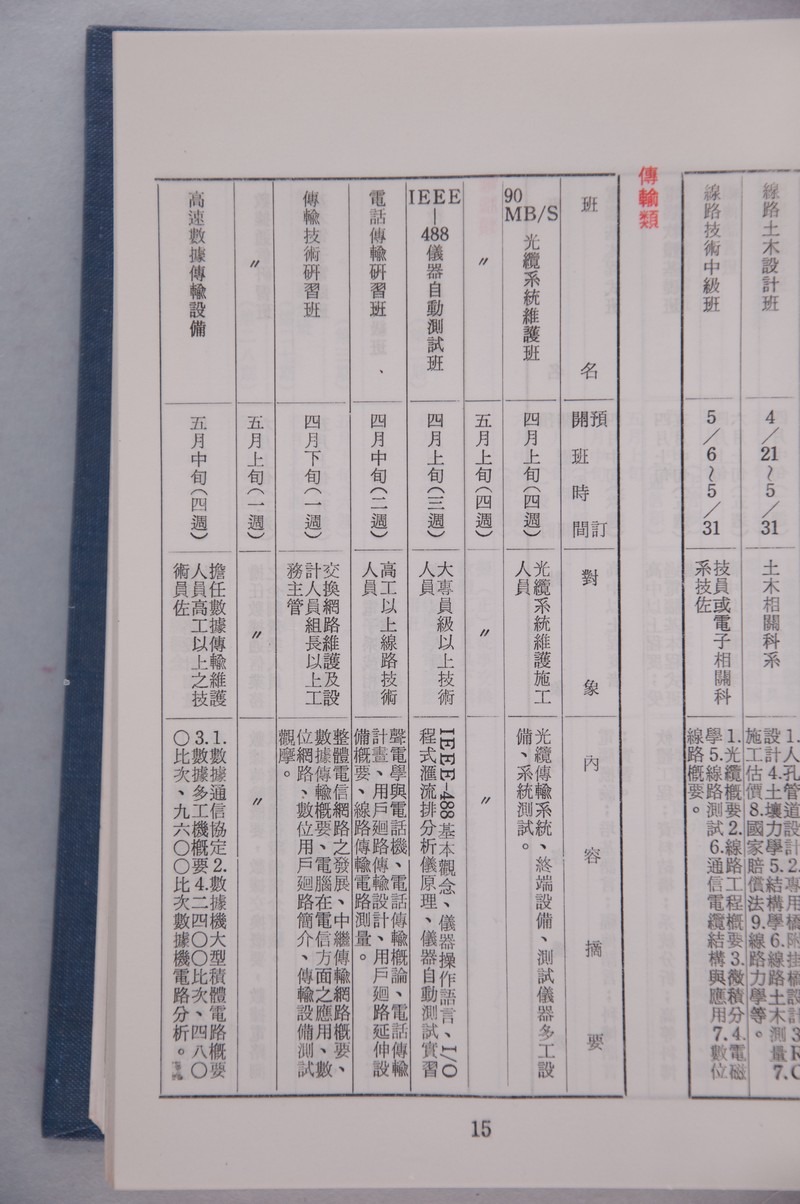 線路土木設計班
4/21~5/31
土木相關科系
設計4.土壤力學5.結構學6.線路土木測量7.
施工估價8.國家賠償法9.線路力學等。
線路技術中級班
5/6~5/31
技員或電子相關科
系技佐
1.光纜概要2.線路工程概要3.微積分4.電磁
學5.線路測試6.通信電纜結構與應用7.數位
線路概要。
傳輸類
班名
預訂
開班時間
對象
內容摘要
90MB/S光纜系統維護班
四月上旬(四週)
光纜系統維護施工
人員
光纜傳輸系統、終端設備、測試儀器多工設
備、系統測試。
〃
五月上旬(四週)
〃
〃
IEEE-488儀器自動測試班
四月上旬(三週)
大專員級以上技術
人員
IEEE-488基本觀念、儀器操作語言、I/O
程式滙流排分析儀原理、儀器自動測試實習
電話傳輸研習班
四月中旬(二週)
高工以上線路技術
人員
聲電學與電話機、電話傳輸概論、電話傳輸
計畫、用戶廻路傳輸設計、用戶廻路延伸設
備概要、線路傳輸電路測量。
傳輸技術研習班
四月下旬(一週)
交換網路維護及設
計人員組長以上工
務主管
整體電信網路之發展、中繼傳輸網路概要、
數據傳輸概要、電腦在電信方面之應用、數
位網路、數位用戶廻路簡介、傳輸設備測試
觀摩。
〃
五月上旬(一週)
〃
〃
高速數據傳輸設備
五月中旬(四週)
擔任數據傳輸維護
人員高工以上之技
術員佐
1.數據通信協定2.數據機大型積體電路概要
3.數據多工機概要4.二四〇〇比次、四八〇
〇比次、九六〇〇比次數據機電路分析。
15